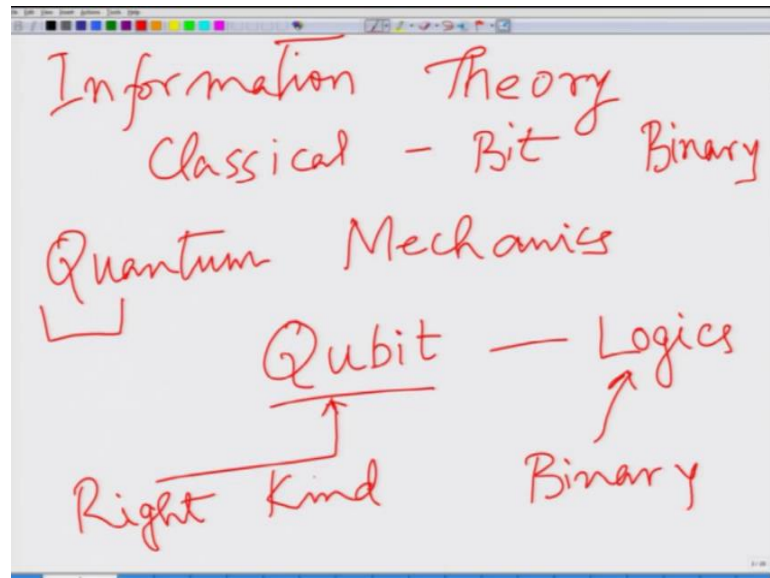 Information Theory
Classical - Bit Binary
Quantum Mechanics
Qubit — Logics
Right Kind Binary